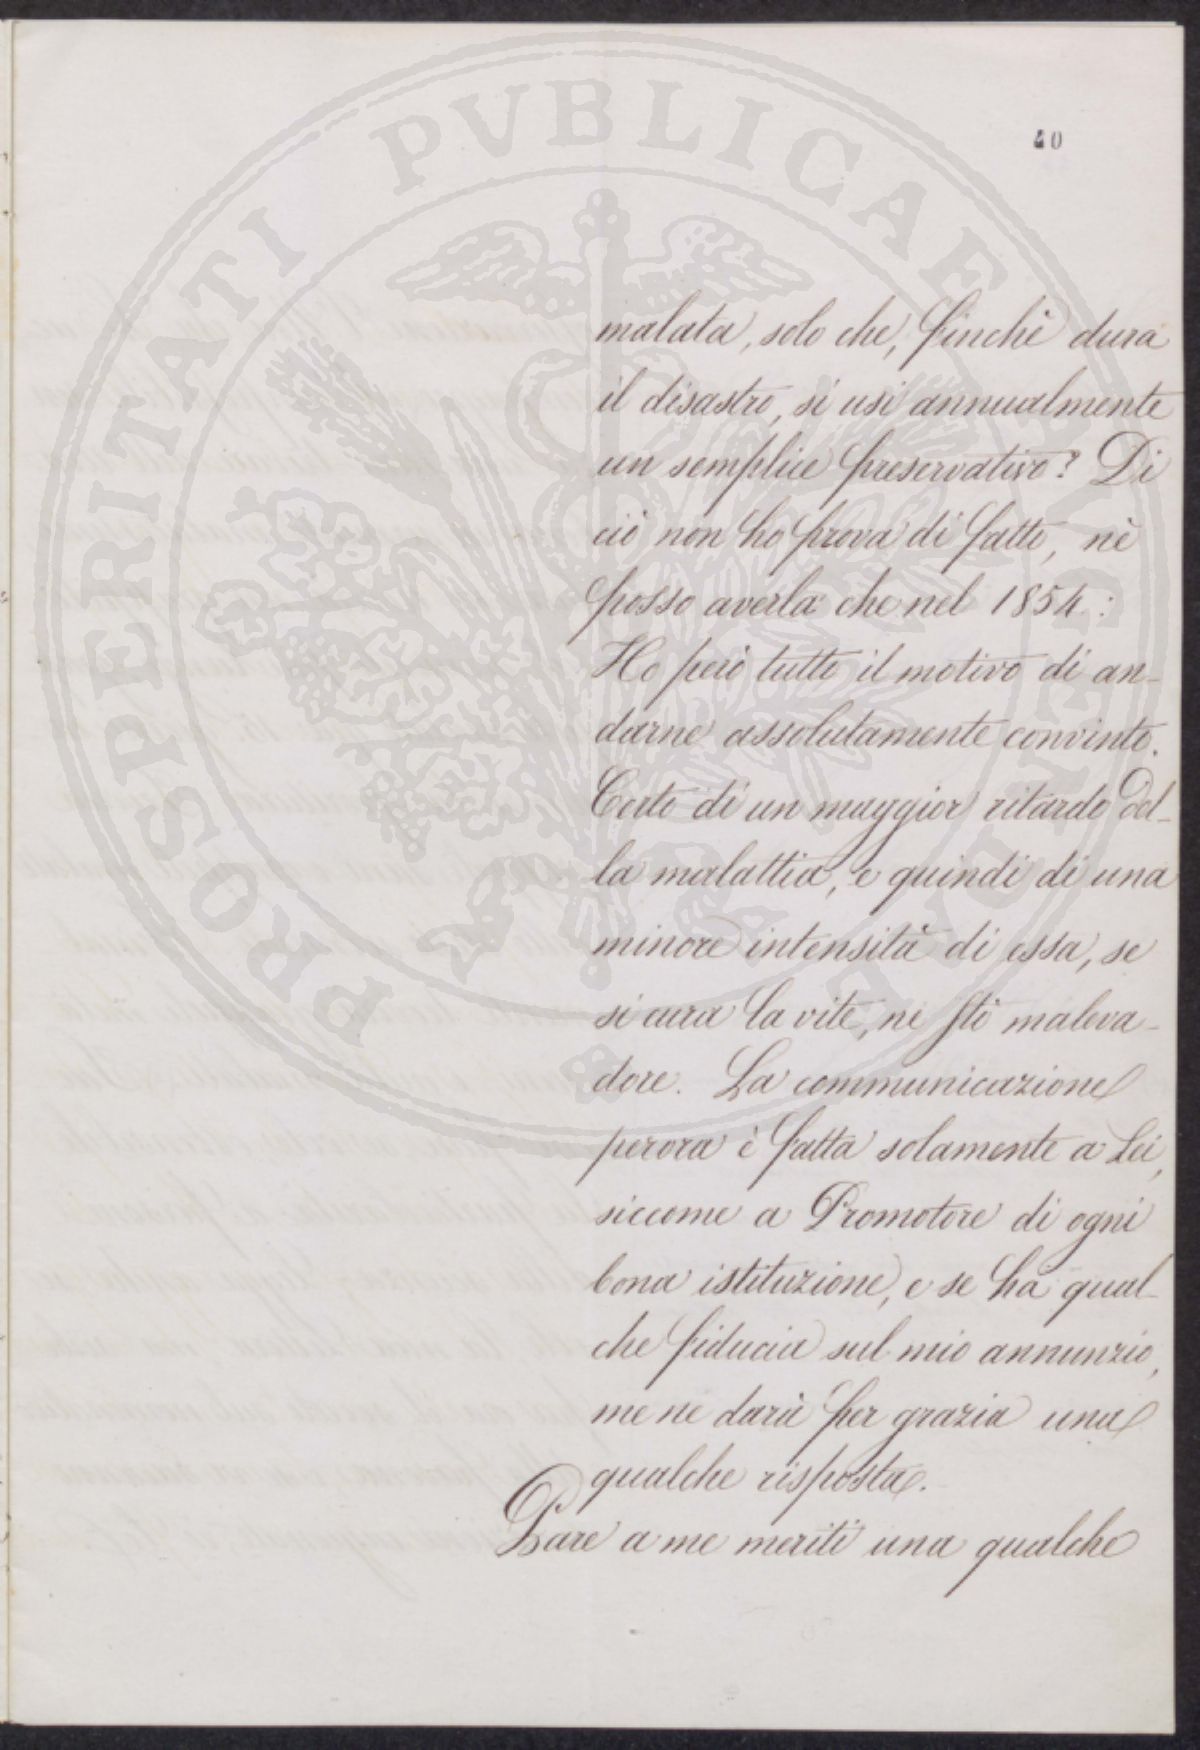 40
PROSPERITATI PVBLICAE AVGENDAE
malata, solo che, finchè dura
il disastro, si usi annualmente
un semplice preservativo? Di
ciò non ho prova di fatto, nè
posso averla che nel 1854:
Ho però tutto il motivo di an-
darne assolutamente convinto.
Certo di un maggior ritardo del-
la malattia, e quindi di una
minore intensità di essa, se
si cura la vite, ne stò maleva-
dore. La communicazione
perora è fatta solamente a Lei,
siccome a Promotore di ogni
bona istituzione, e se ha qual-
che fiducia sul mio annunzio,
me ne darà per grazia una
qualche risposta.
Pare a me meriti una qualche